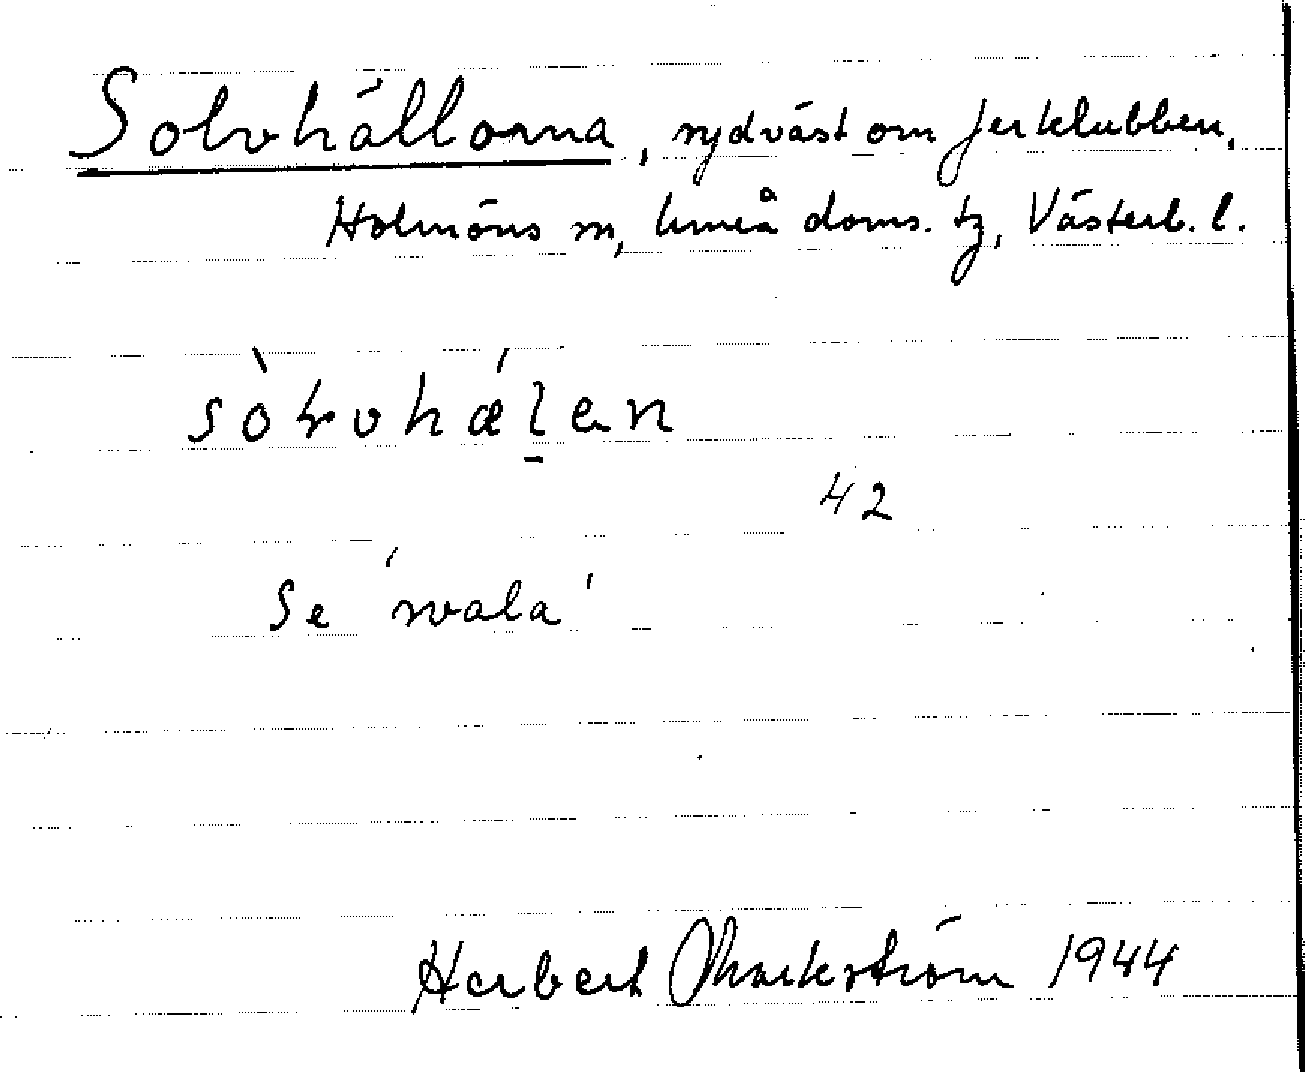 Solvhällorna, sydväst om Jerklubben,
Holmöns sn, Umeå doms. tg, Västerb. l.
42
se
Herbert Markström 1944